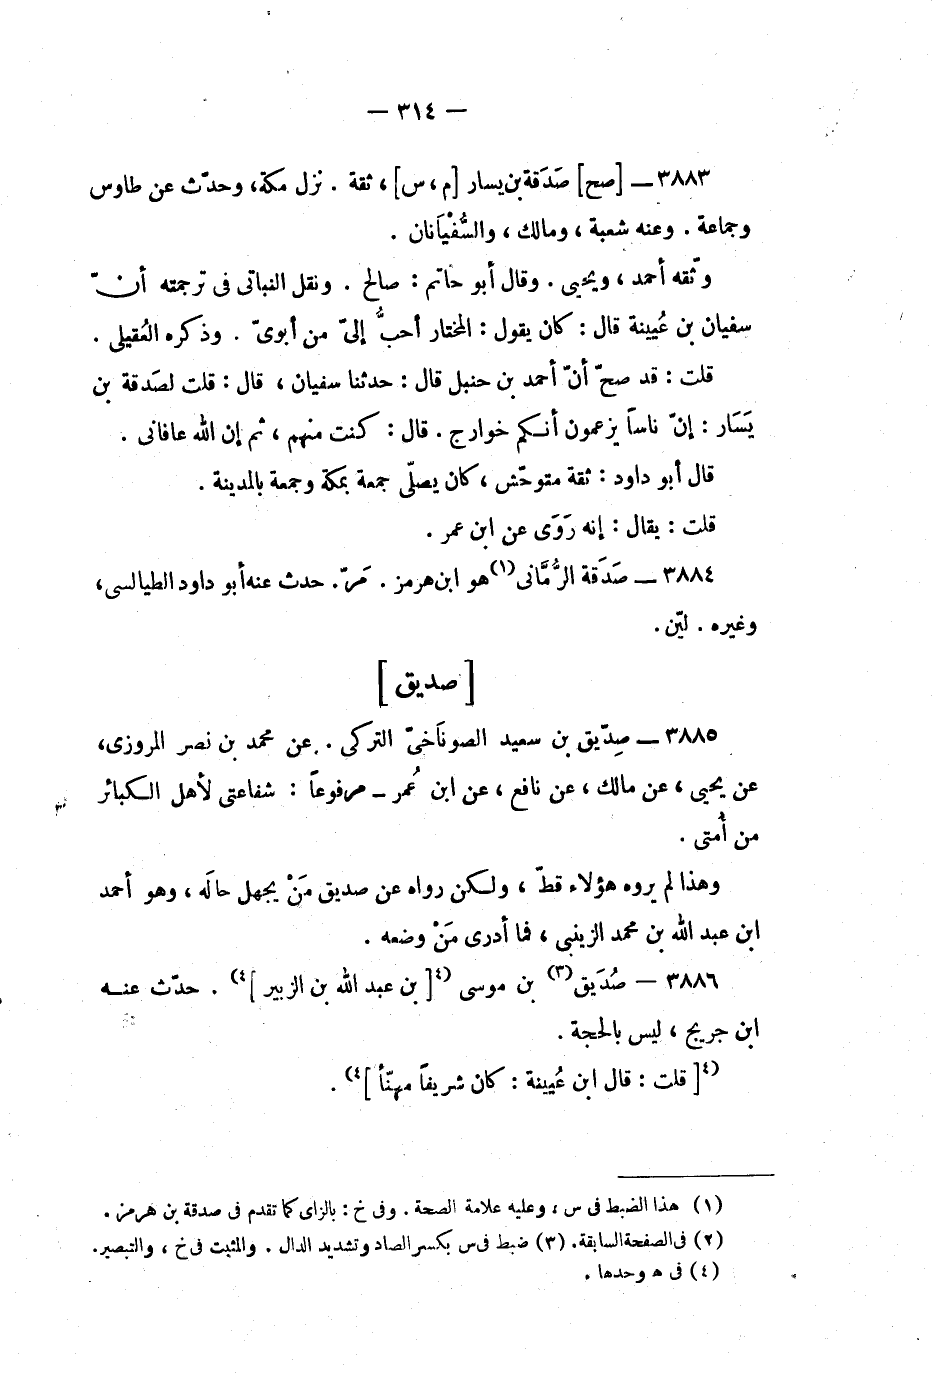 — ٣١٤ —
٣٨٨٣ — [صح] صَدَقة بن يسار [م ، س] ، ثقة . نزل مكة، وحدّث عن طاوس
وجماعة . وعنه شعبة ، ومالك ، والسُّفْيَانان .
وثّقه أحمد ، ويحيى . وقال أبو حاتم : صالح . ونقل النباتى فى ترجمته أنّ
سفيان بن عُيينة قال : كان يقول : المختار أحبُّ إلىّ من أبوىّ . وذكره العُقيلى .
قلت : قد صحّ أنّ أحمد بن حنبل قال : حدثنا سفيان ، قال : قلت لصَدقة بن
يَسَار : إنّ ناساً يزعمون أنكم خوارج . قال : كنت منهم ، ثم إن الله عافانى .
قال أبو داود : ثقة متوحّش ، كان يصلّى جمعة بمكة وجمعة بالمدينة .
قلت : يقال : إنه رَوَى عن ابن عمر .
٣٨٨٤ — صَدَقة الرُّمَّانى(١) هو ابن هرمز . مَرّ. حدث عنه أبو داود الطيالسى ،
وغيره . ليّن .
[صديق]
٣٨٨٥ — صِدّيق بن سعيد الصونَاخىّ التركى . عن محمد بن نصر المروزى،
عن يحيى ، عن مالك ، عن نافع ، عن ابن عُمر – مرفوعاً : شفاعتى لأهل الكبائر
من أُمتى .
وهذا لم يروه هؤلاء قطّ ، ولكن رواه عن صديق مَنْ يجهل حالَه ، وهو أحمد
ابن عبد الله بن محمد الزينبى ، فما أدرى مَنْ وضعه .
٣٨٨٦ — صُدَيق(٣) بن موسى (٤[ بن عبد الله بن الزبير ]٤) . حدّث عنه
ابن جريج ، ليس بالحجة .
(٤[ قلت : قال ابن عُيينة : كان شريفاً مهنّأ ]٤) .
(١) هذا الضبط فى س ، وعليه علامة الصحة . وفى خ : بالزاى كما تقدم فى صدقة بن هرمز .
(٢) فى الصفحة السابقة. (٣) ضبط فى س بكسر الصاد وتشديد الدال . والمثبت فى خ ، والتبصير.
(٤) فى ه وحدها .